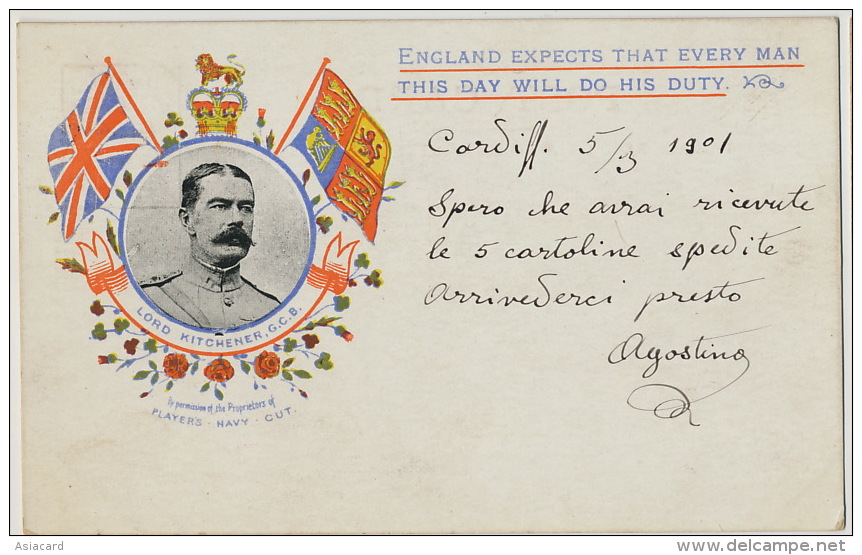 ENGLAND EXPECTS THAT EVERY MAN
THIS DAY WILL DO HIS DUTY.
Cardiff. 5/3 1901
Spero che avrai ricevute
le 5 cartoline spedite
Arrivederci presto
Agostino
LORD KITCHENER, G.C.B.
By permission of the Proprietors of
PLAYER'S · NAVY · CUT.
Asiacard
www.delcampe.net